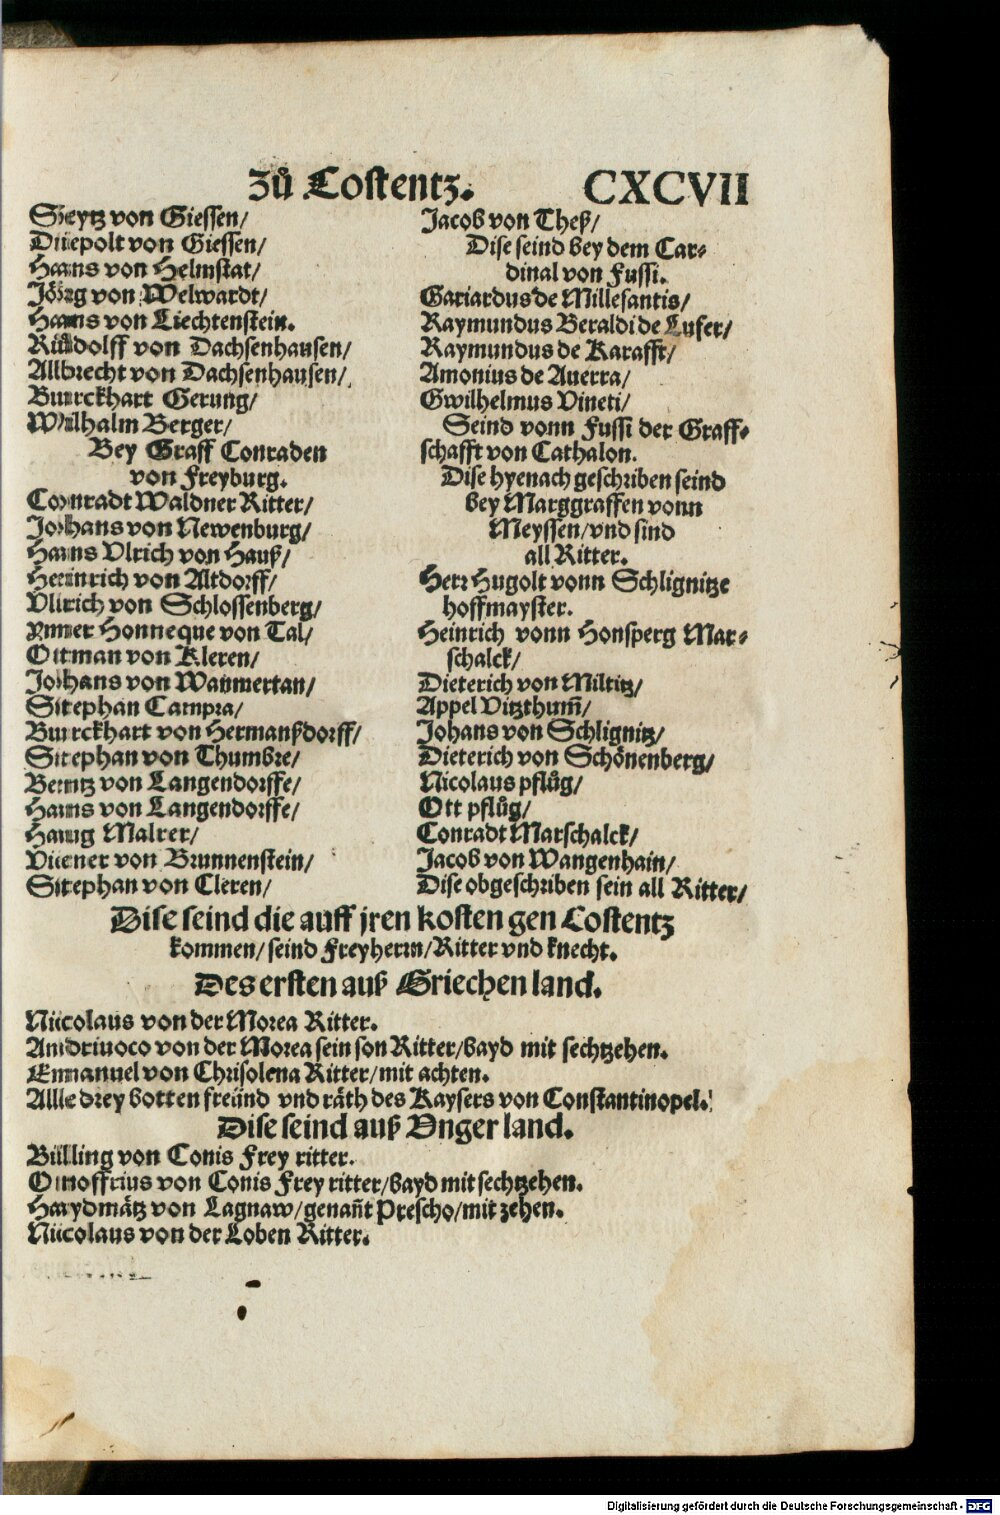 Zů Costentz. CXCVII
Seytz von Giessen/
Diepolt von Giessen/
Hanns von Helmstat/
Jörg von Welwardt/
Hanns von Liechtenstein.
Růdolff von Dachsenhausen/
Albrecht von Dachsenhausen/
Burckhart Gerung/
Wilhalm Berger/
Bey Graff Conraden
von Freyburg.
Conradt Waldner Ritter/
Johans von Newenburg/
Hanns Vlrich von Hauß/
Heinrich von Altdorff/
Vlrich von Schlossenberg/
Honneque von Tal/
Otman von Kleren/
Johans von Waumertan/
Stephan Campra/
Burckhart von Hermanßdorff/
Stephan von Thumbre/
Berntz von Langendorffe/
Hanns von Langendorffe/
Haug Malrer/
von Brunnenstein/
Stephan von Cleren/
Jacob von Theß/
Dise seind bey dem Car-
dinal von Fussi.
Gariardus de Millesantis/
Raymundus Beraldi de Lufer/
Raymundus de Karafft/
Amonius de Auerra/
Gwilhelmus Vineti/
Seind vonn Fussi der Graff-
schafft von Cathalon.
Dise hyenach geschriben seind
bey Marggraffen vonn
Meyssen/vnd sind
all Ritter.
Herr Hugolt vonn Schlignitze
hoffmayster.
Heinrich vonn Honsperg Mar-
schalck/
Dieterich von Miltitz/
Appel Vitzthum̄/
Johans von Schlignitz/
Dieterich von Schönenberg/
Nicolaus pflůg/
Ott pflůg/
Conradt Marschalck/
Jacob von Wangenhain/
Dise obgeschriben sein all Ritter/
Dise seind die auff jren kosten gen Costentz
kommen/seind Freyherrn/Ritter vnd knecht.
Des ersten auß Griechen land.
Nicolaus von der Morea Ritter.
Andriuoco von der Morea sein son Ritter/bayd mit sechtzehen.
Emanuel von Chrisolena Ritter/mit achten.
Alle drey botten freünd vnd räth des Kaysers von Constantinopel.
Dise seind auß Vnger land.
Bülling von Conis Frey ritter.
Onoffrius von Conis Frey ritter/bayd mit sechtzehen.
Haydmätz von Lagnaw/genañt Prescho/mit zehen.
Nicolaus von der Loben Ritter.
Digitalisierung gefördert durch die Deutsche Forschungsgemeinschaft - DFG